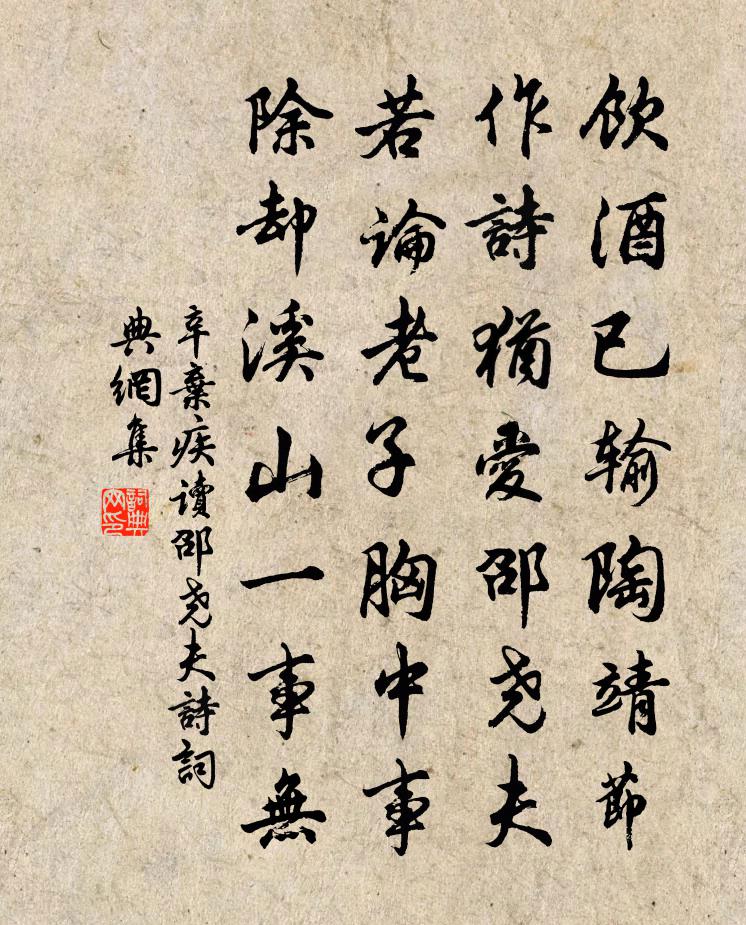 飲酒已输陶靖節
作詩猶愛邵尧夫
若論老子胸中事
除却溪山一事無
辛棄疾讀邵尧夫詩詞
典網集
詞典
网印